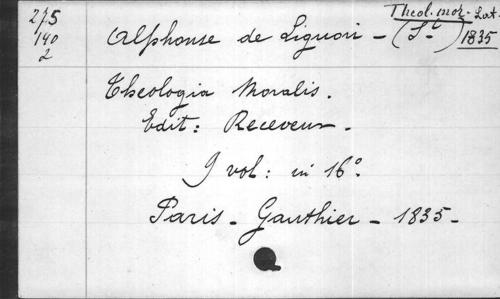 275
140
2
Theol. mor. Lat.
1835
Alphonse de Liguori - (St)
Theologia Moralis.
Edit: Receveur.
9 vol: in 16°.
Paris - Gauthier - 1835-